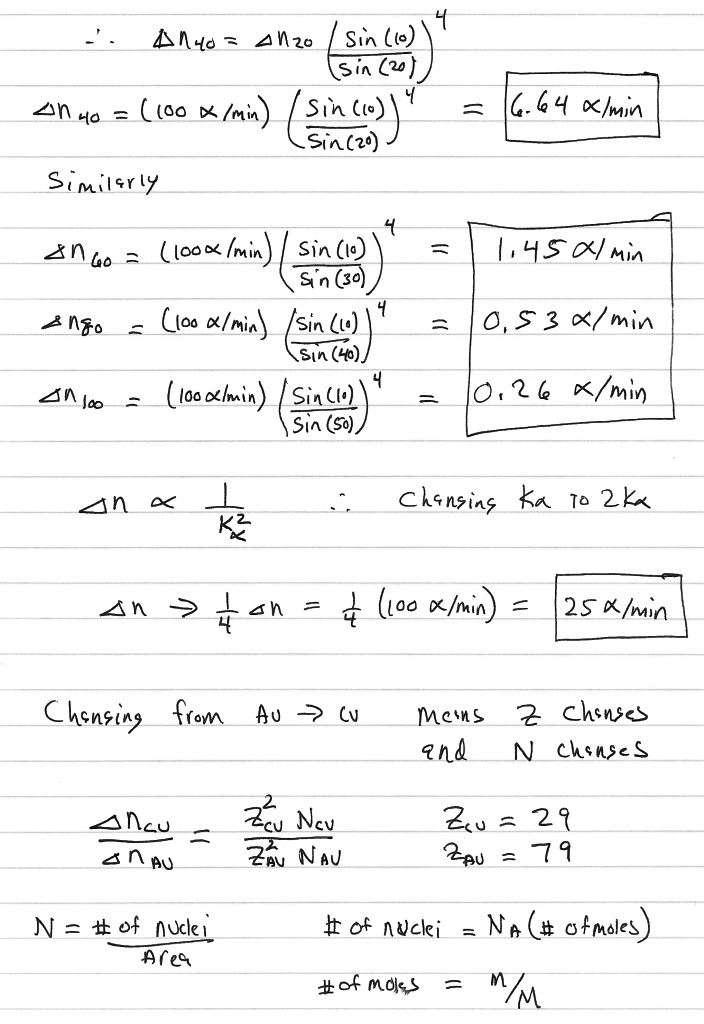 ∴ Δn40 = Δn20 (Sin(10)/Sin(20))^4
Δn40 = (100 α/min) (Sin(10)/Sin(20))^4 = 6.64 α/min
Similarly
Δn60 = (100 α/min) (Sin(10)/Sin(30))^4 = 1.45 α/min
Δn80 = (100 α/min) (Sin(10)/Sin(40))^4 = 0.53 α/min
Δn100 = (100 α/min) (Sin(10)/Sin(50))^4 = 0.26 α/min
Δn ∝ 1/Kα^2 ∴ Changing Kα To 2Kα
Δn → 1/4 Δn = 1/4 (100 α/min) = 25 α/min
Changing from Au → Cu means Z changes
and N changes
ΔnCu/ΔnAu = Z²Cu NCu/Z²Au NAu ZCu = 29
ZAu = 79
N = # of nuclei/Area # of nuclei = NA (# of moles)
# of moles = m/M